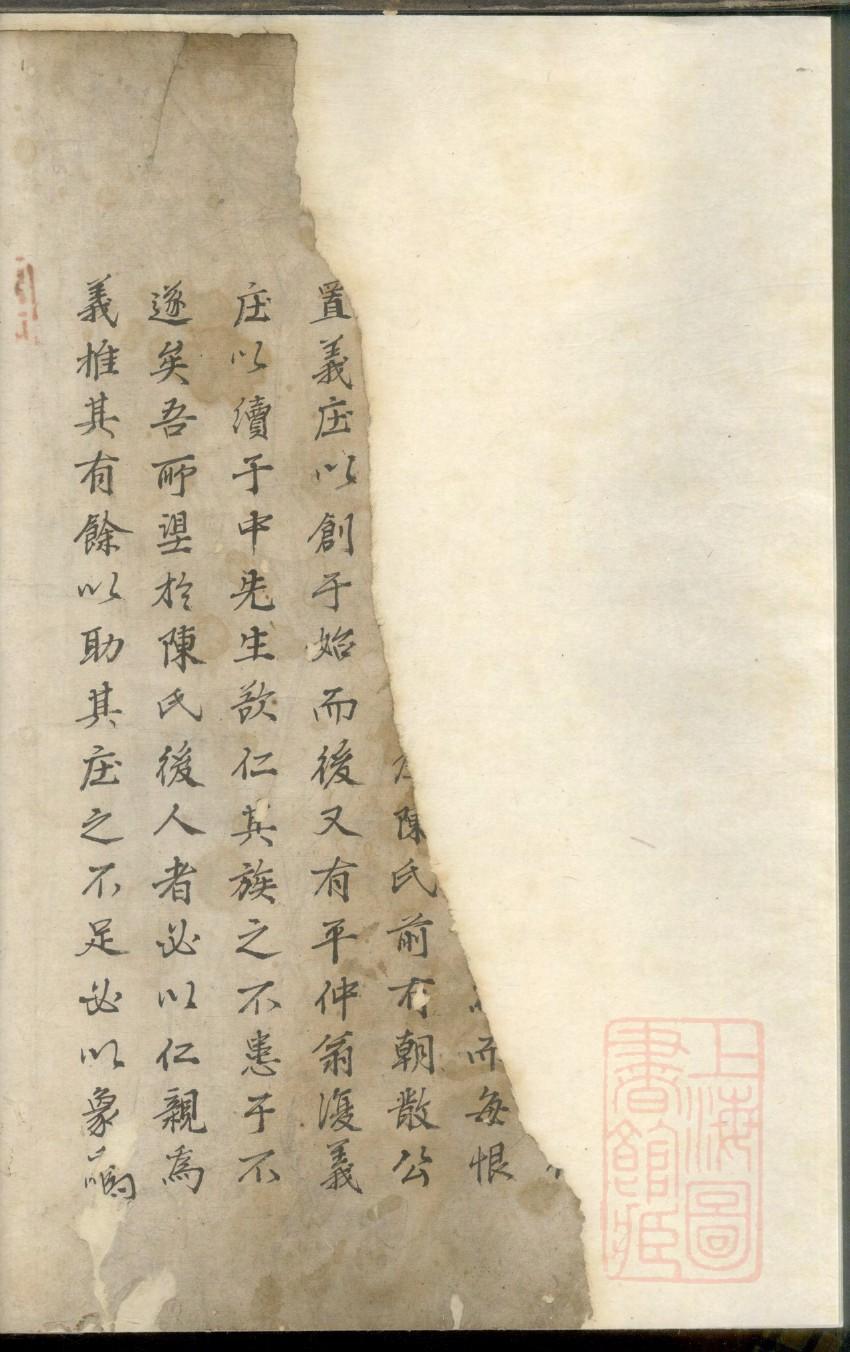 而每恨
陳氏前有朝散公
置義庄以創于始而後又有平仲翁復義
庄以續于中先生欲仁其族之不患于不
遂矣吾所望於陳氏後人者必以仁親為
義推其有餘以助其庄之不足必以象
上海圖書館藏